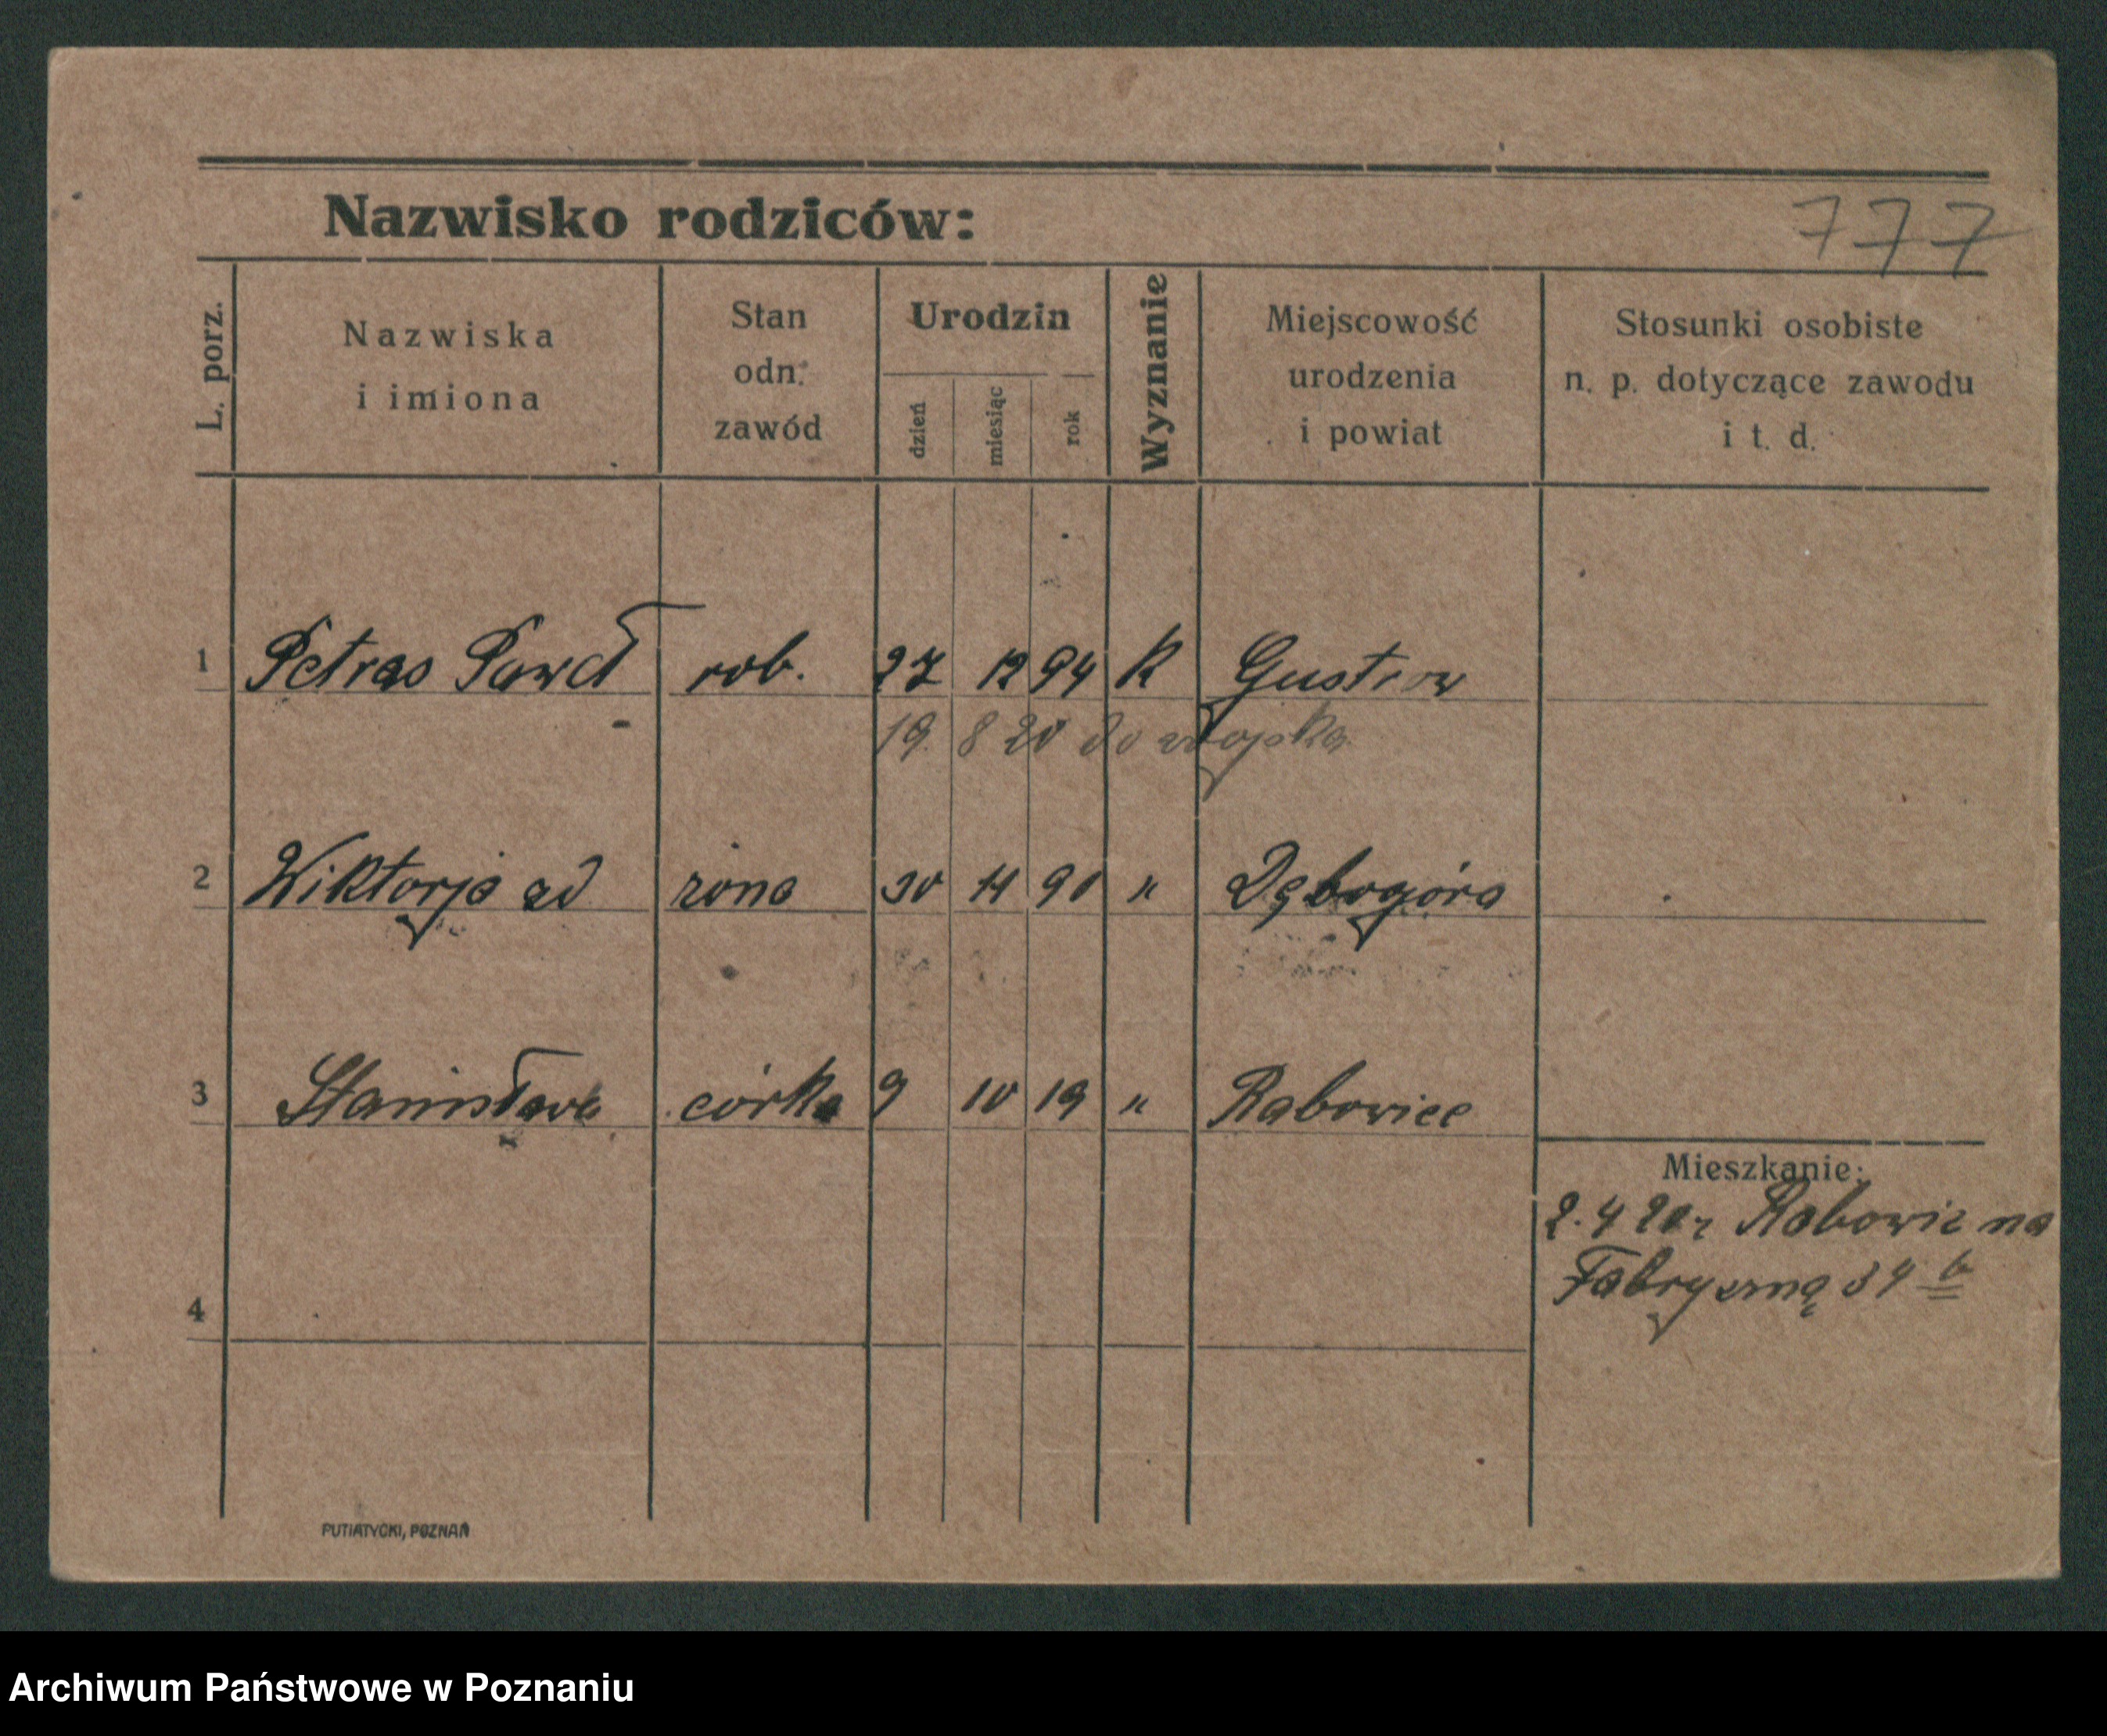 Nazwisko rodziców: 777
L. porz.
Nazwiska i imiona
Stan odn. zawód
Urodzin
dzień miesiąc rok
Wyznanie
Miejscowość urodzenia i powiat
Stosunki osobiste n. p. dotyczące zawodu i t. d.
1 Petras Paweł rob. 27 12 94 K Gustrow
19. 8 20 do wojska
2 Wiktorja żona 30 11 90 " Dębogóra
3 Stanisława córka 9 10 19 " Rabowice
Mieszkanie:
2. 4 20 z Rabowic na
Fabryczną 34
4
PUTIATYCKI, POZNAŃ
Archiwum Państwowe w Poznaniu